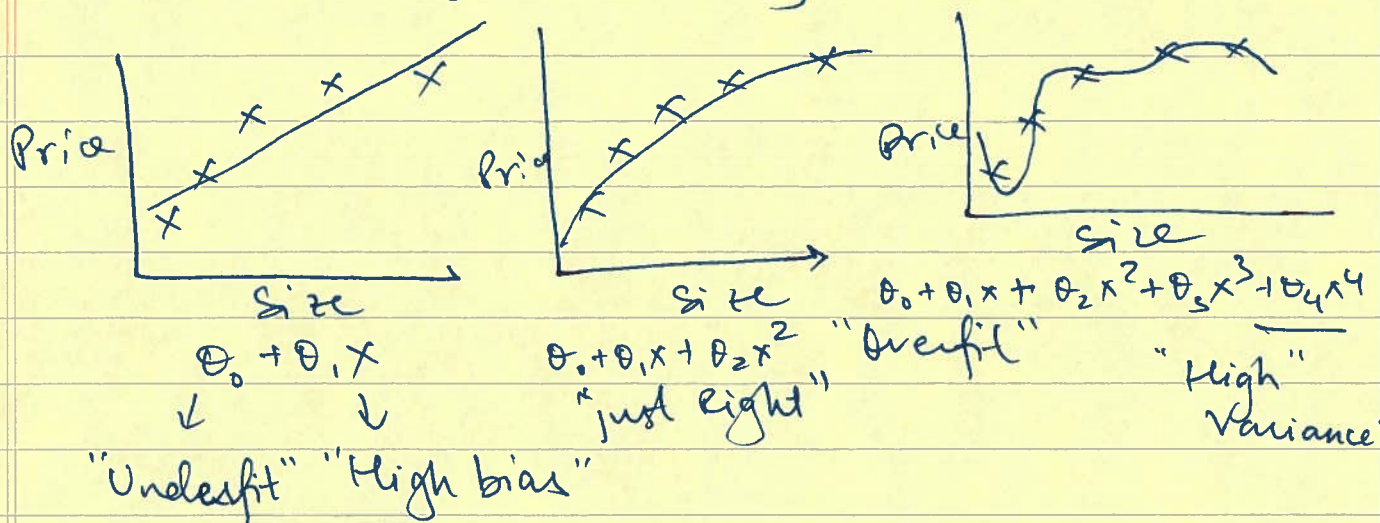 Price
Size
θ₀ + θ₁x
"Underfit" "High bias"
Price
Size
θ₀ + θ₁x + θ₂x²
"just Right"
Price
Size
θ₀ + θ₁x + θ₂x² + θ₃x³ + θ₄x⁴
"Overfit"
"High"
Variance"